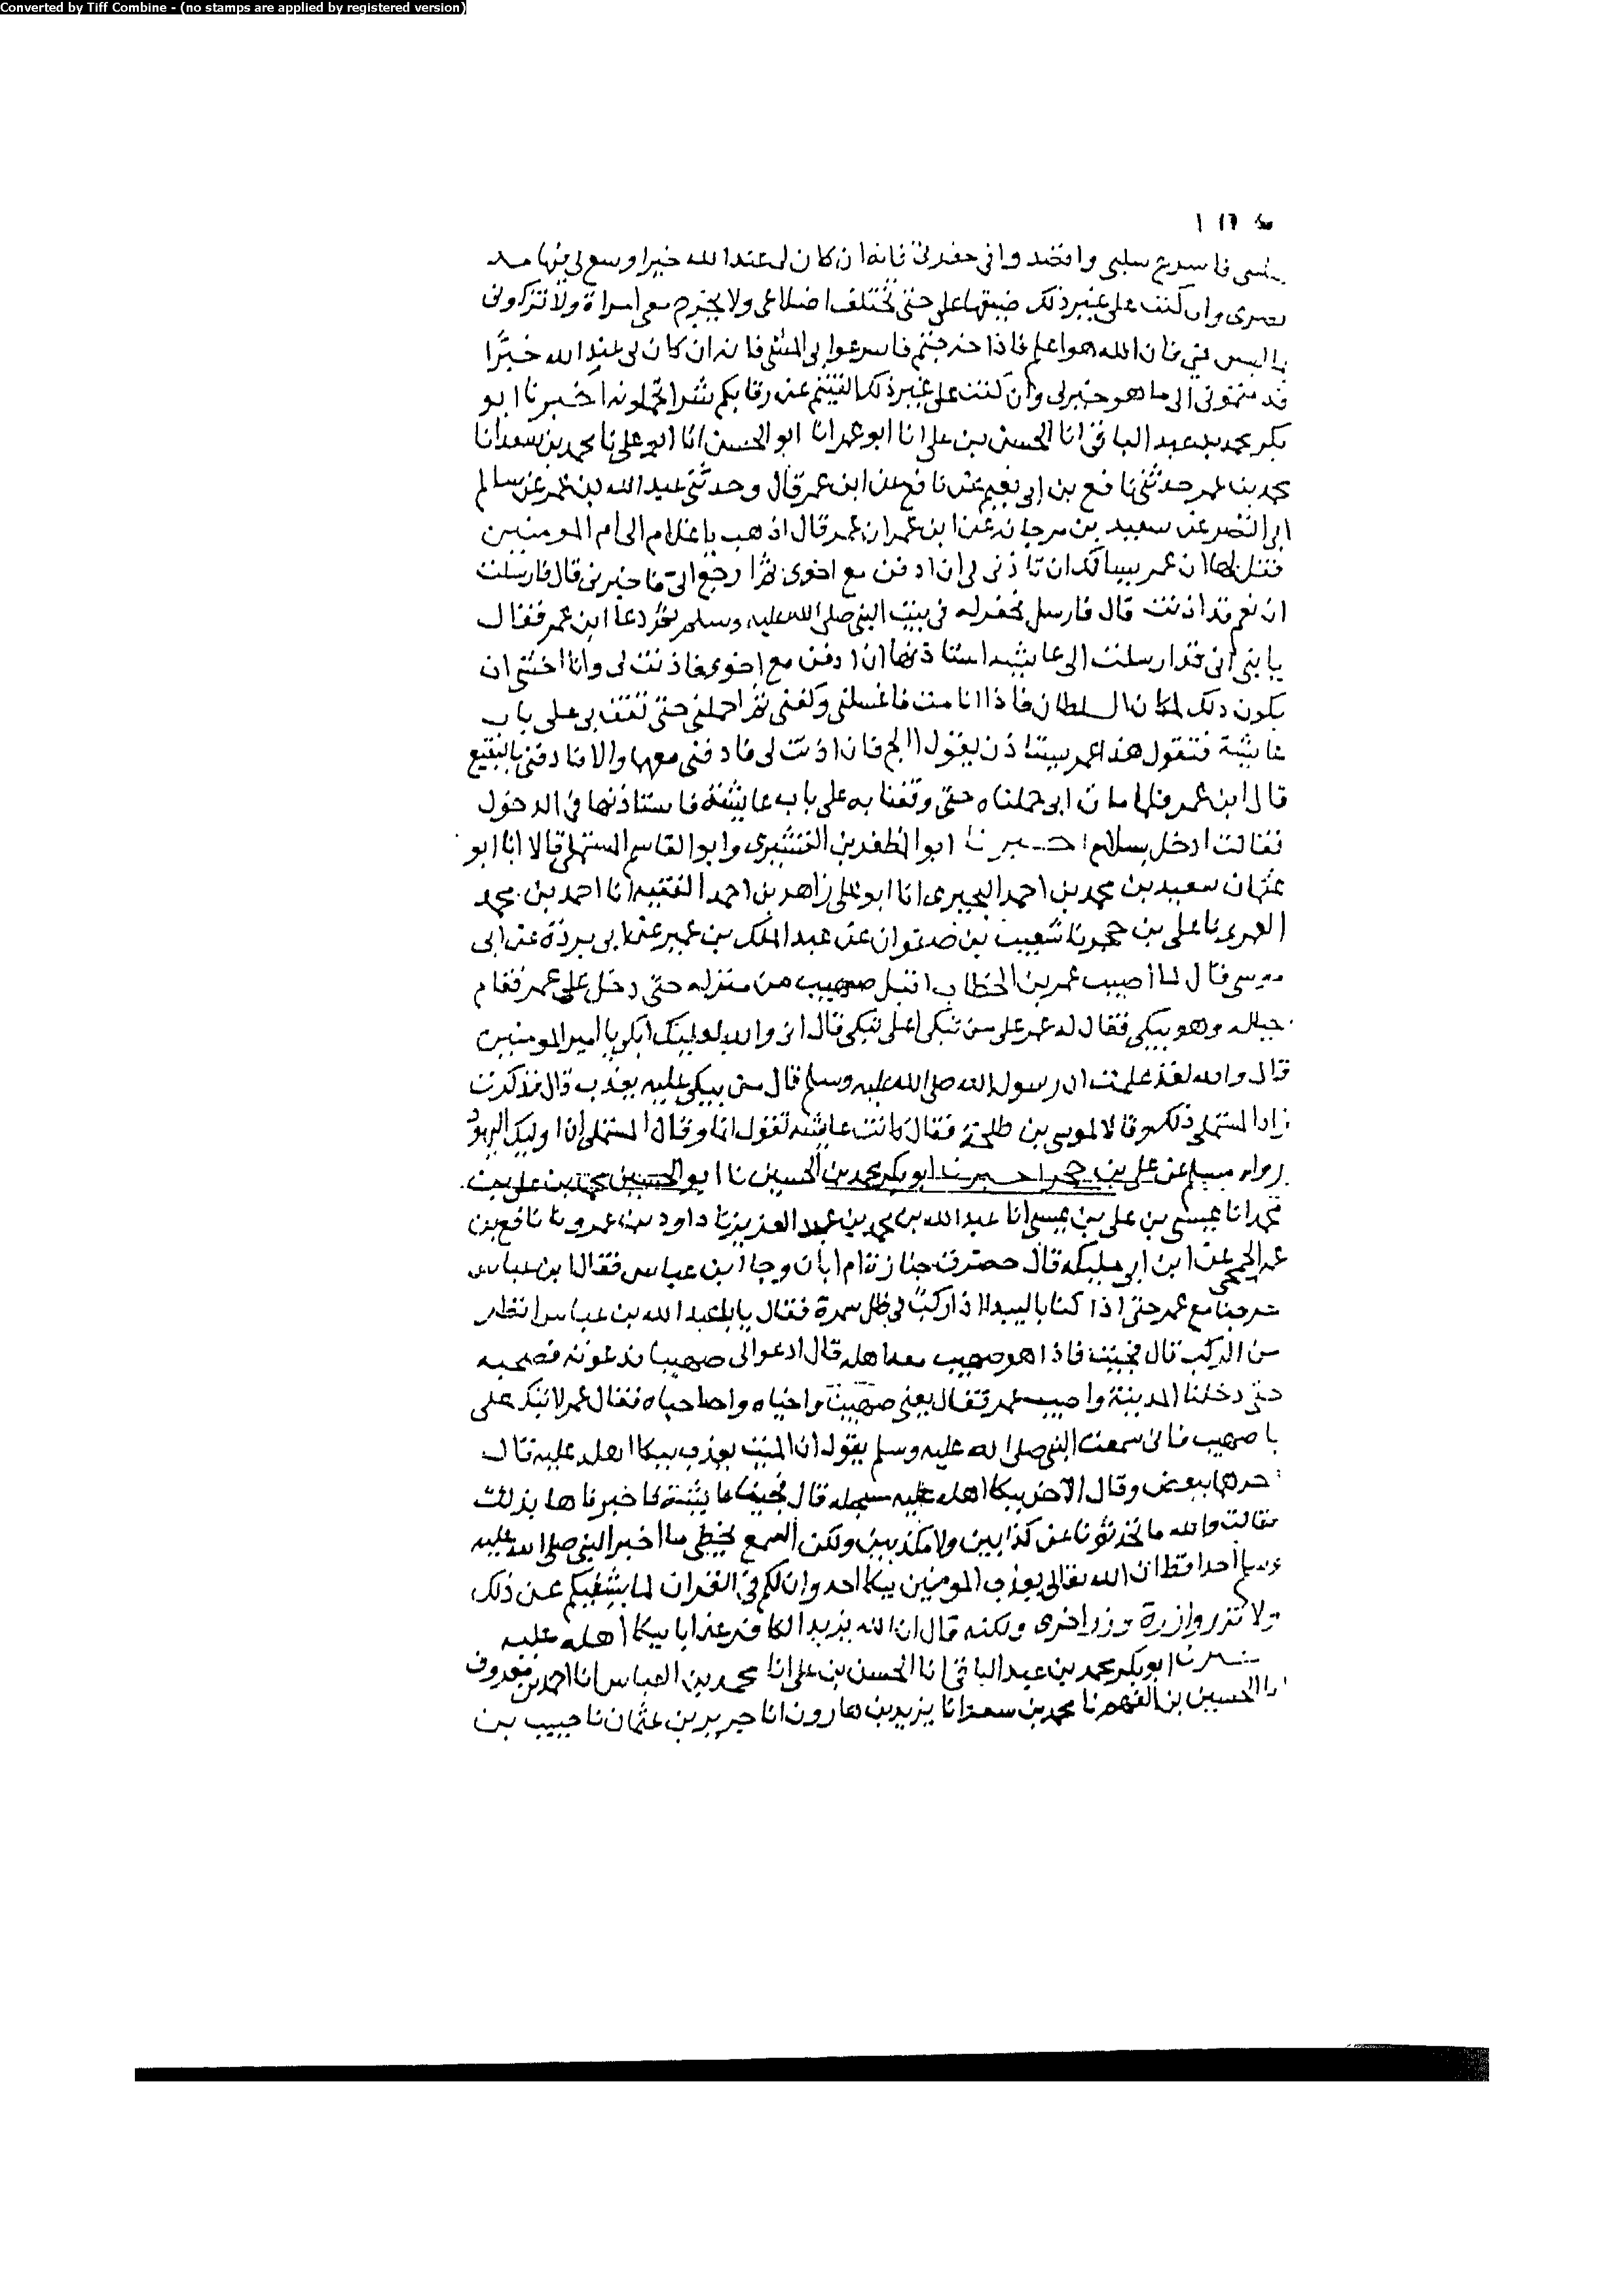 Converted by Tiff Combine - (no stamps are applied by registered version)
فاسرع سلبى واقتصدوا فى حفرتى فانه ان كان لى عند الله خيرا وسع لى فيها مد
بصرى وان كنت على غير ذلك ضيقها على حتى تختلف اضلاعى ولا يخرج معى امراة ولا تزكونى
بما ليس فى فان الله هو اعلم فاذا خرجتم فاسرعوا بى المشى فانه ان كان لى عند الله خيرا
قدمتمونى الى ما هو خير لى وان كنت على غير ذلك القيتم عن رقابكم شرا تحملونه اخبرنا ابو
بكر محمد بن عبد الباقى انا الحسن بن على انا ابو عمر انا ابو الحسن انا ابو على نا محمد بن سعد انا
محمد بن عمر حدثنى نافع بن ابى نعيم عن نافع عن ابن عمر قال وحدثنى عبد الله بن عمر عن سالم
ابى النضر عن سعيد بن مرجانه عن ابن عمر ان عمر قال اذهب يا غلام الى ام المومنين
فقل لها ان عمر يسالك ان تاذنى لى ان ادفن مع اخوى ثم ارجع الى فاخبرنى قال فارسلت
ان نعم قد اذنت قال فارسل فحفر له فى بيت النبى صلى الله عليه وسلم ثم دعا ابن عمر فقال
يا بنى انى قد ارسلت الى عايشة استاذنها ان ادفن مع اخوى فاذنت لى وانا اخشى ان
يكون ذلك لمكان السلطان فاذا انا مت فاغسلنى وكفنى ثم احملنى حتى تقف بى على باب
عايشة فتقول هذا عمر يستاذن يقول االج فان اذنت لى فادفنى معهما والا فادفنى بالبقيع
قال ابن عمر فلما مات ابى حملناه حتى وقفنا به على باب عايشة فاستاذنها فى الدخول
فقالت ادخل بسلام اخبرنا ابو المظفر بن القشيرى وابو القاسم المستملى قالا انا ابو
عثمان سعيد بن محمد بن احمد البحيرى انا ابو على زاهر بن احمد الفقيه انا احمد بن محمد
نا على بن حجر نا شعيب بن صفوان عن عبد الملك بن عمير عن ابى بردة عن ابى
موسى قال لما اصيب عمر بن الخطاب اقبل صهيب من منزله حتى دخل على عمر فقام
بحياله وهو يبكى فقال له عمر على من تبكى اعلى تبكى قال اى والله لعليك ابكى يا امير المومنين
قال والله لقد علمت ان رسول الله صلى الله عليه وسلم قال من يبكى عليه يعذب قال فذكرت
زاد المستملى ذلك وقالا لموسى بن طلحة فقال كانت عايشه تقول انما وقال المستملى ان اوليك اليهود
رواه مسلم عن على بن حجر اخبرنا ابو بكر محمد بن الحسين نا ابو الحسين محمد بن على بن
محمد انا عيسى بن على بن عيسى انا عبد الله بن محمد بن عبد العزيز نا داود بن عمرو نا نافع بن
عمر الجمحى عن ابن ابى مليكه قال حضرت جنازة ام ابان وجا ابن عباس فقال ابن عباس
خرجنا مع عمر حتى اذا كنا بالبيدا اذا ركب فى ظل سمرة فقال يا عبد الله بن عباس انظر
من الركب قال فجيت فاذا هو صهيب معه اهله قال ادعوا لى صهيبا فدعوته فصحبه
حتى دخلنا المدينة واصيب عمر فقال يعنى صهيب وا اخياه واصاحباه فقال عمر لا تبك على
يا صهيب فانى سمعت النبى صلى الله عليه وسلم يقول ان الميت يعذب ببكا اهله عليه قال
ببعض وقال الاخر ببكا اهله عليه قال فجيت عايشة فاخبرناها بذلك
فقالت والله ما تحدثونا عن كذابين ولا مكذبين ولكن السمع يخطى ما اخبر النبى صلى الله عليه
وسلم احدا قط ان الله تعالى يعذب المومنين ببكا احد وان لكم فى القران لما يشفيكم عن ذلك
ولا تزر وازرة وزر اخرى ولكنه قال ان الله يزيد الكافر عذابا ببكا اهله عليه
اخبرنا ابو بكر محمد بن عبد الباقى انا الحسن بن على انا محمد بن العباس انا احمد بن معروف
انا الحسين بن الفهم نا محمد بن سعد انا يزيد بن هارون انا حريز بن عثمان نا حبيب بن